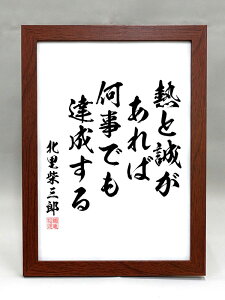 熱と誠が
あれば
何事でも
達成する
北里柴三郎